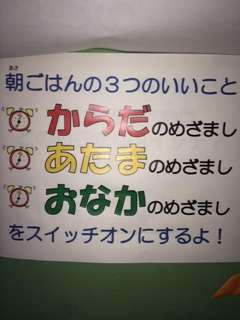 あさ
朝ごはんの3つのいいこと
からだのめざまし
あたまのめざまし
おなかのめざまし
をスイッチオンにするよ！